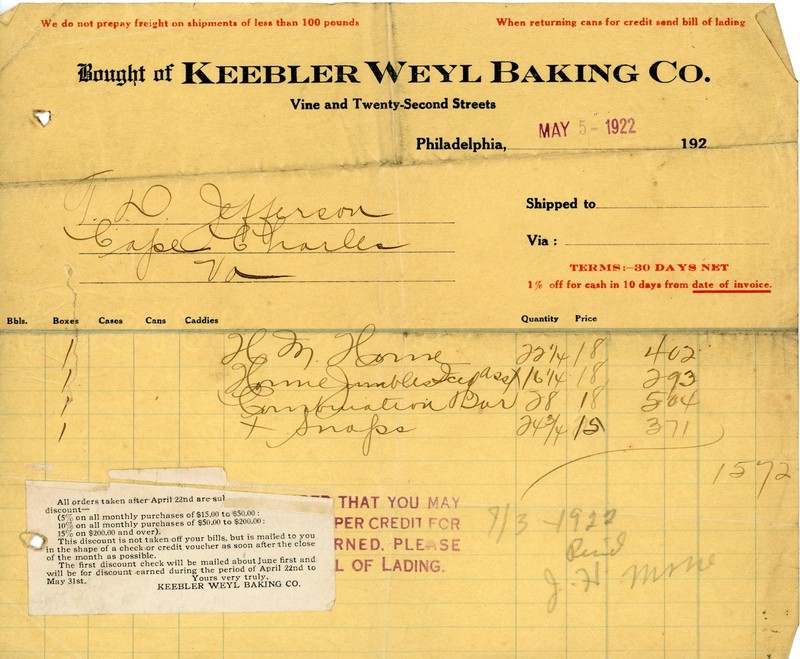 We do not prepay freight on shipments of less than 100 pounds
When returning cans for credit send bill of lading
Bought of KEEBLER WEYL BAKING CO.
Vine and Twenty-Second Streets
Philadelphia, MAY 5 - 1922 192
T. D. Jefferson
Cape Charles
Va
Shipped to
Via :
TERMS:-30 DAYS NET
1% off for cash in 10 days from date of invoice.
Bbls. Boxes Cases Cans Caddies Quantity Price
1 H M. Home 22 1/4 18 402
1 Home Jumbles Iced Asst 16 1/4 18 293
1 Combination Bar 28 18 504
1 + Snaps 24 3/4 15 371
1572
All orders taken after April 22nd are
discount—
(5% on all monthly purchases of $15.00 to $50.00:
10% on all monthly purchases of $50.00 to $200.00:
15% on $200.00 and over).
This discount is not taken off your bills, but is mailed to you
in the shape of a check or credit voucher as soon after the close
of the month as possible.
The first discount check will be mailed about June first and
will be for discount earned during the period of April 22nd to
May 31st. Yours very truly,
KEEBLER WEYL BAKING CO.
THAT YOU MAY
PER CREDIT FOR
RNED, PLEASE
L OF LADING.
1922
J. H.